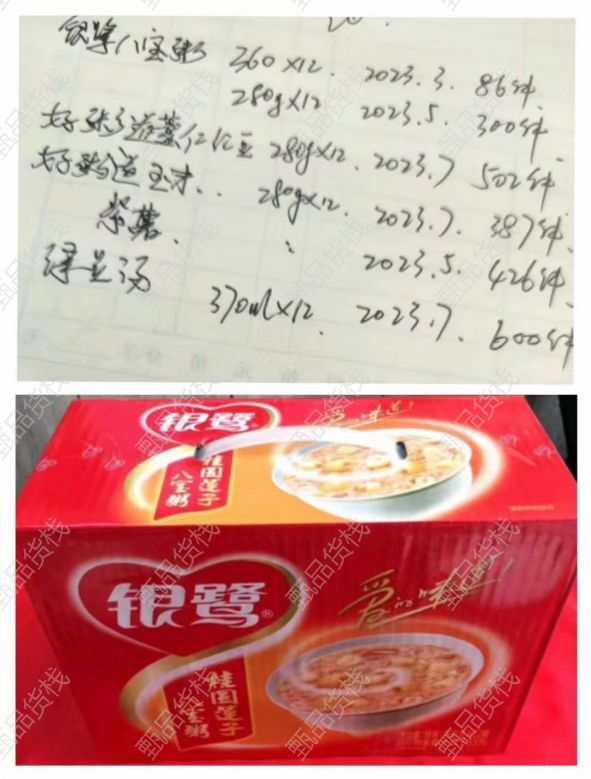 银鹭八宝粥 360×12. 2023.3. 86件.
280g×12 2023.5. 300件.
好粥道薏仁红豆 280g×12. 2023.7 502件
好粥道玉米.. 280g×12. 2023.7. 387件.
紫薯. 2023.5. 426件.
绿豆汤 370ml×12. 2023.7. 600件
银鹭
爱的味道!
桂圆莲子
八宝粥
银鹭®
爱的味道!
桂圆莲子
八宝粥
甄品货栈